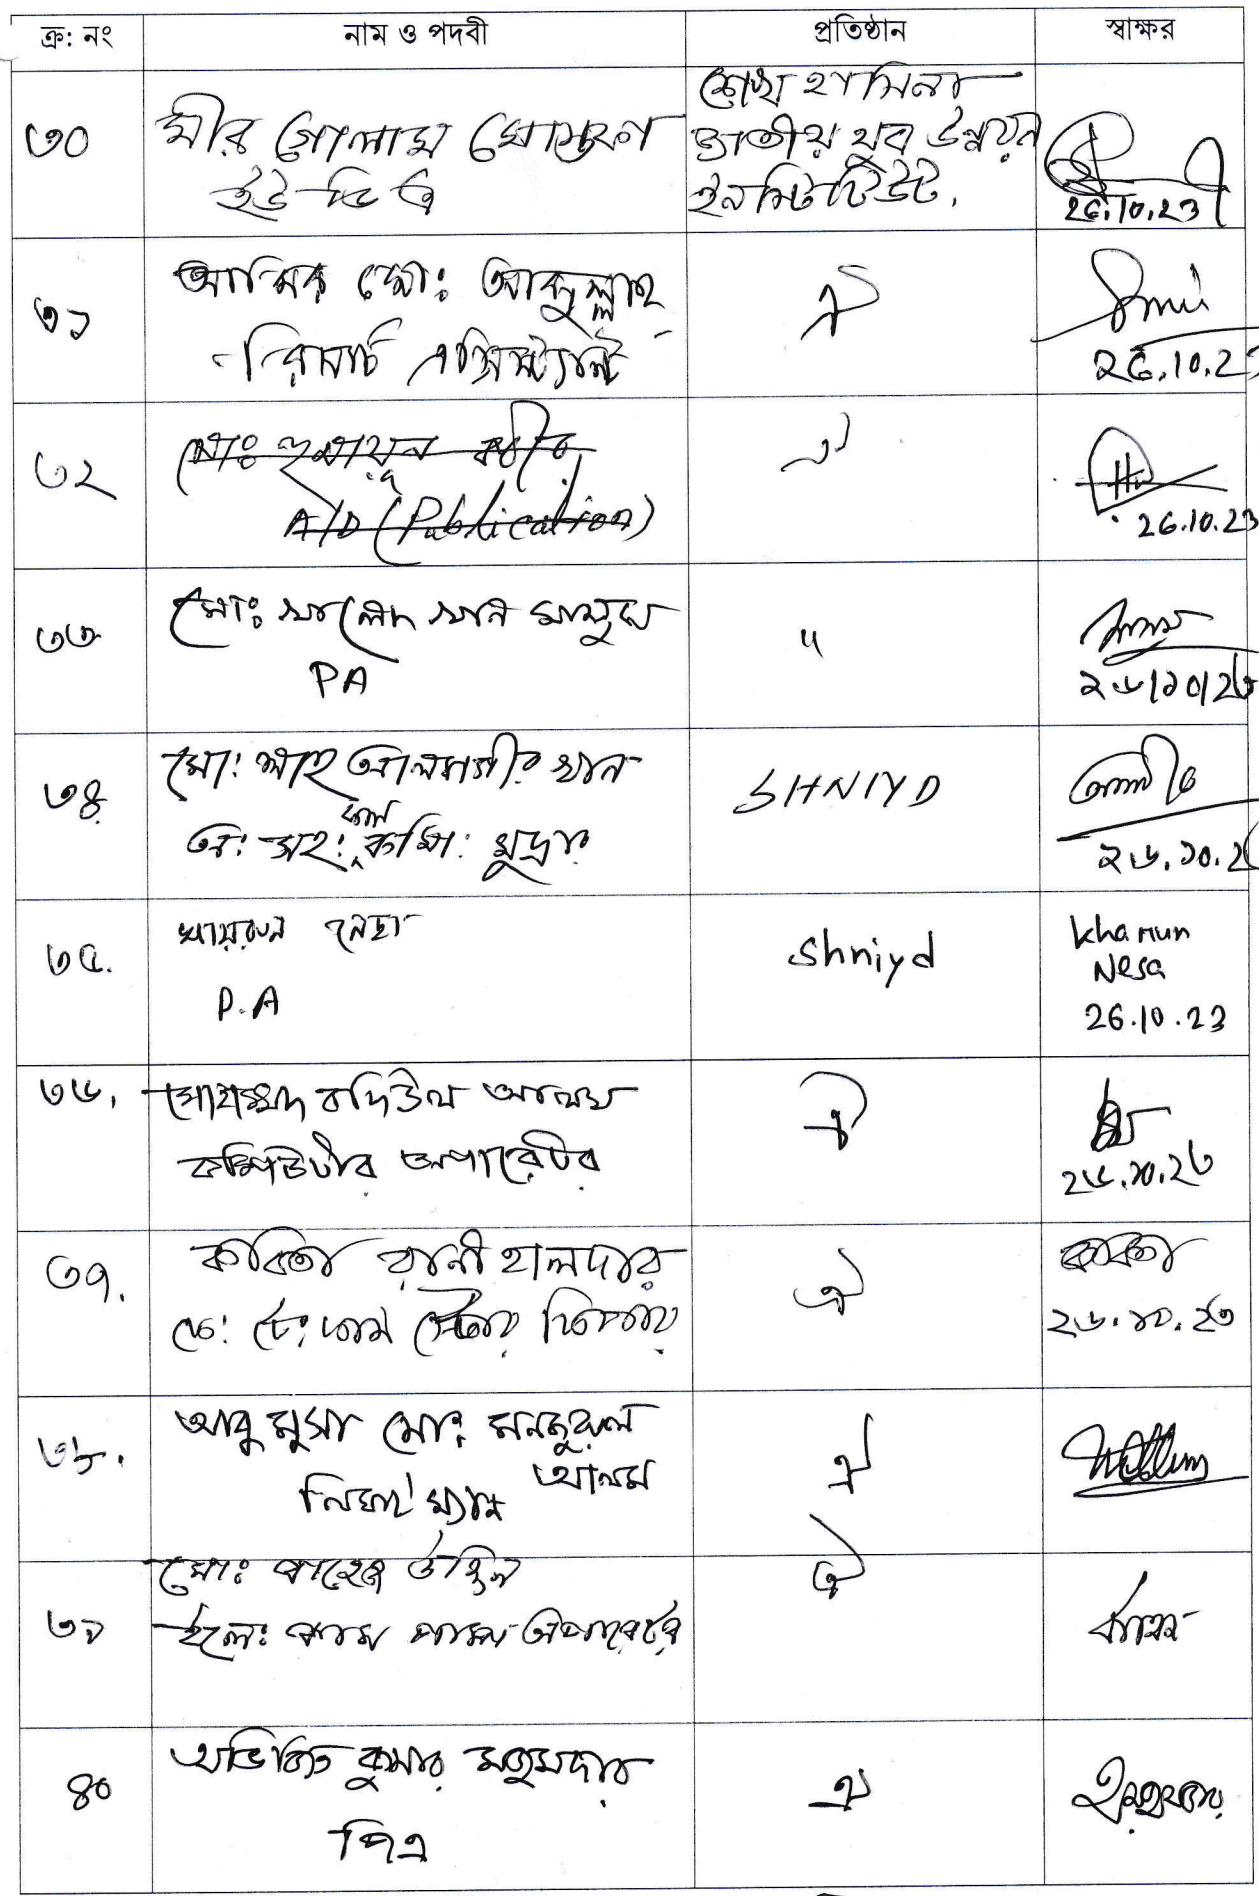 ক্র: নং নাম ও পদবী প্রতিষ্ঠান স্বাক্ষর
৩০ মীর গোলাম মোস্তফা শেখ হাসিনা জাতীয় যুব উন্নয়ন ইনস্টিটিউট.
26.10.23
৩১ আমির মো: আব্দুল্লাহ ঐ
রিসার্চ এসিস্ট্যান্ট 26.10.23
৩২ মোঃ হুমায়ুন কবীর ঐ
A/D (Publication) 26.10.23
৩৩ মোঃ খালেদ খান মাসুম "
PA ২৬/১০/২৩
৩৪ মো: শাহ আলমগীর খান SHNIYD
অ: সহ: কাম কম্পি: মুদ্রা: ২৬.১০.২
৩৫. খায়রুন নেছা Shniyd Kharun Nesa
P.A 26.10.23
৩৬. মোহাম্মদ বদিউল আলম ঐ
কম্পিউটার অপারেটর ২৬.১০.২৩
৩৭. কবিতা রানী হালদার ঐ কবিতা
কাম স্টোর কিপার ২৬.১০.২৩
৩৮. আবু মুসা মোঃ মনজুরুল আলম ঐ
৩৯ মোঃ উদ্দিন ঐ
ইলেঃ কাম পাম্প অপারেটর
৪০ অভিজিত কুমার মজুমদার ঐ
পিএ